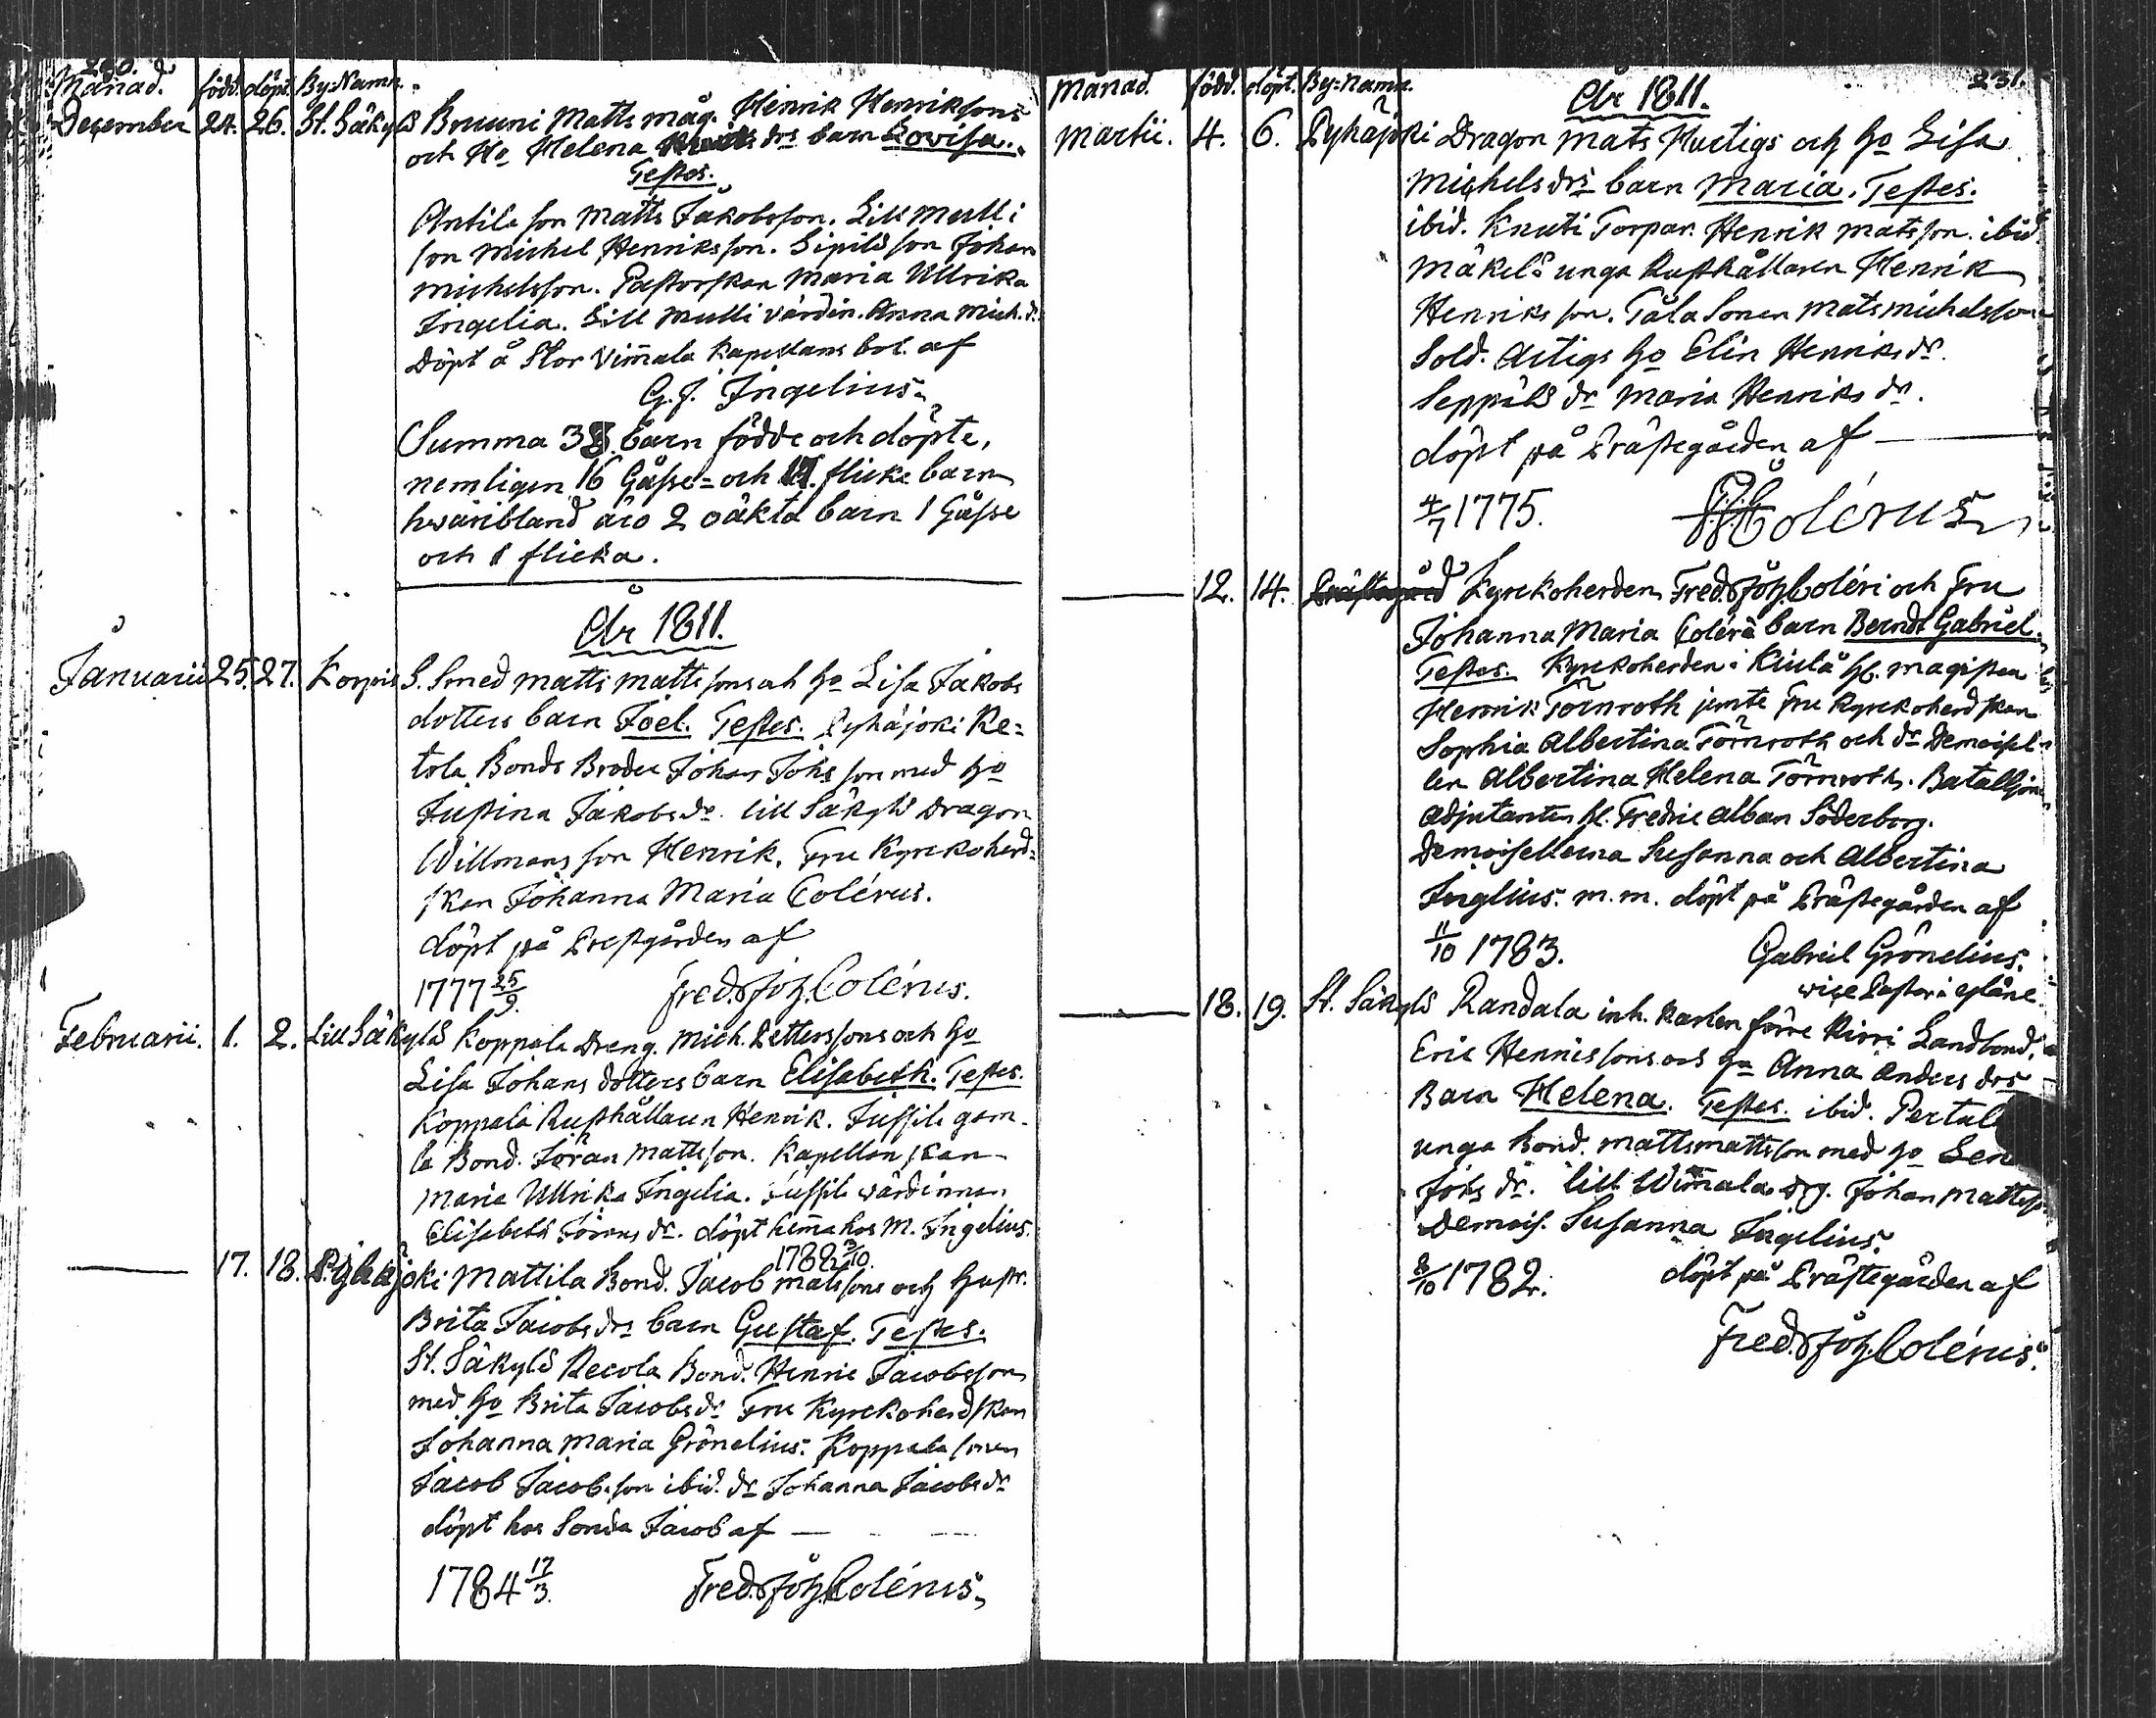 Månad. född. döpt. By=Namn.
December 24. 26. St. Säkylä Bruuni Matts måg. Henrik Henriksons
och Ho Helena drs barn Lovisa.
Testes.
Antila son Matts Jakobsson. Lill Mulli
son Michel Henriksson. Sipilä son Johan
Michelsson. Pastorskan Maria Ullrika
Ingelia. Lill Mulli värdin. Anna Mich. dr.
Döpt å Stor Vim̄ala Kapellans bol. af
G. J. Ingelius.
Summa 38 barn födde och döpte,
nemligen 16 Gåsse= och flicke barn
hvaribland äro 2 oäkta barn 1 Gåsse
och 1 flicka.
År 1811.
Januarii 25. 27. Korpis S. Smed Matts Mattssons och Ho Lisa Jakobs
dotters barn Joel. Testes. Pyhäjoki Ke=
tola Bonds Broder Johan Johs son med Ho
Justina Jakobs dr. Lill Säkylä Dragon
Willmans son Henrik. Fru Kyrkoherd=
skan Johanna Maria Colérus.
döpt på Prestgården af
1777 25/9. Fred. Joh. Colérus.
Februarii. 1. 2. Lill Säkylä Koppala Dreng. Mich. Petterssons och Ho
Lisa Johans dotters barn Elisabeth. Testes.
Koppala Rusthållaren Henrik. Jussila gam-
la Bond. Jöran Mattsson. Kapellanskan
Maria Ullrika Ingelia. Jussila wärdinnan
Elisabeth Jörans dr. döpt hem̄a hos M. Ingelius.
1788 3/10.
17. 18. Pyhäjoki Mattila Bond. Jacob Matssons och Hustr.
Brita Jacobs drs barn Gustaf. Testes.
St. Säkylä Recola Bond. Henric Jacobsson
med Ho Brita Jacobs dr Fru Kyrckoherdskan
Johanna Maria Grönelius. Koppala sonen
Jacob Jacobsson ibid. dr Johanna Jacobs dr
döpt hos Sonda Jacob af
1784 17/3. Fred. Joh. Colérus.
231.
Månad. född. döpt. By=namn. År 1811.
Martii. 4. 6. Pyhäjoki Dragon Mats Hurtigs och Ho Lisa
Michels drs barn Maria. Testes.
ibid. Knuti Torpar. Henrik Matsson. ibid
Mäkelä unga Rusthållaren Henrik
Henriksson. Tala Sonen Mats Michelsson
Sold. Artigs Ho Elin Henriks dr.
Seppälä dr Maria Henriks dr.
döpt på Prästegården af
4/7 1775. Colérus
12. 14. Prästegård Kyrckoherden Fred. Joh Coléri och Fru
Johanna Maria Coléra barn Berndt Gabriel.
Testes. Kyrckoherden i Kiulå H. Magister
Henrik Törnroth jemte Fru Kyrckoherdskan
Sophia Albertina Törnroth och dr Demoisel-
len Albertina Helena Törnroth. Bataljons
Adjutanten H. Fredric Alban Söderborg.
Demoisellerna Susanna och Albertina
Inglius. m. m. döpt på Prästegården af
11/10 1783. Gabriel Grönelius.
vice Pastor i
18. 19. St. Säkylä Randala inh. karlen förre Kirri Landbond.
Eric Henricssons och Ho Anna Anders drs
Barn Helena. Testes. ibid. Pertal
unga Bond. Matts Mattsson med Ho Len
Johs dr. Lill Wim̄ala dr. Johan Matts
Demois. Susanna Ingelius.
8/10 1782. döpt på Prästegården af
Fred. Joh. Colérus.